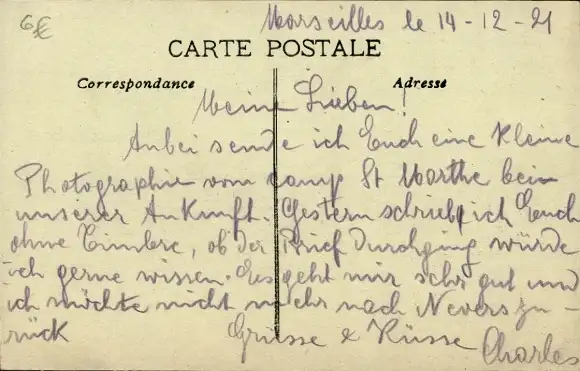 6€
Marseilles le 14-12-21
CARTE POSTALE
Correspondance
Adresse
Meine Lieben!
Anbei sende ich Euch eine kleine
Photographie vom camp St Marthe bei
unserer Ankunft. Gestern schrieb ich Euch
ohne Timbre, ob der Brief durchging würde
ich gerne wissen. Es geht mir sehr gut und
ich möchte nicht mehr nach Nevers zu-
rück
Grüsse & Küsse
Charles